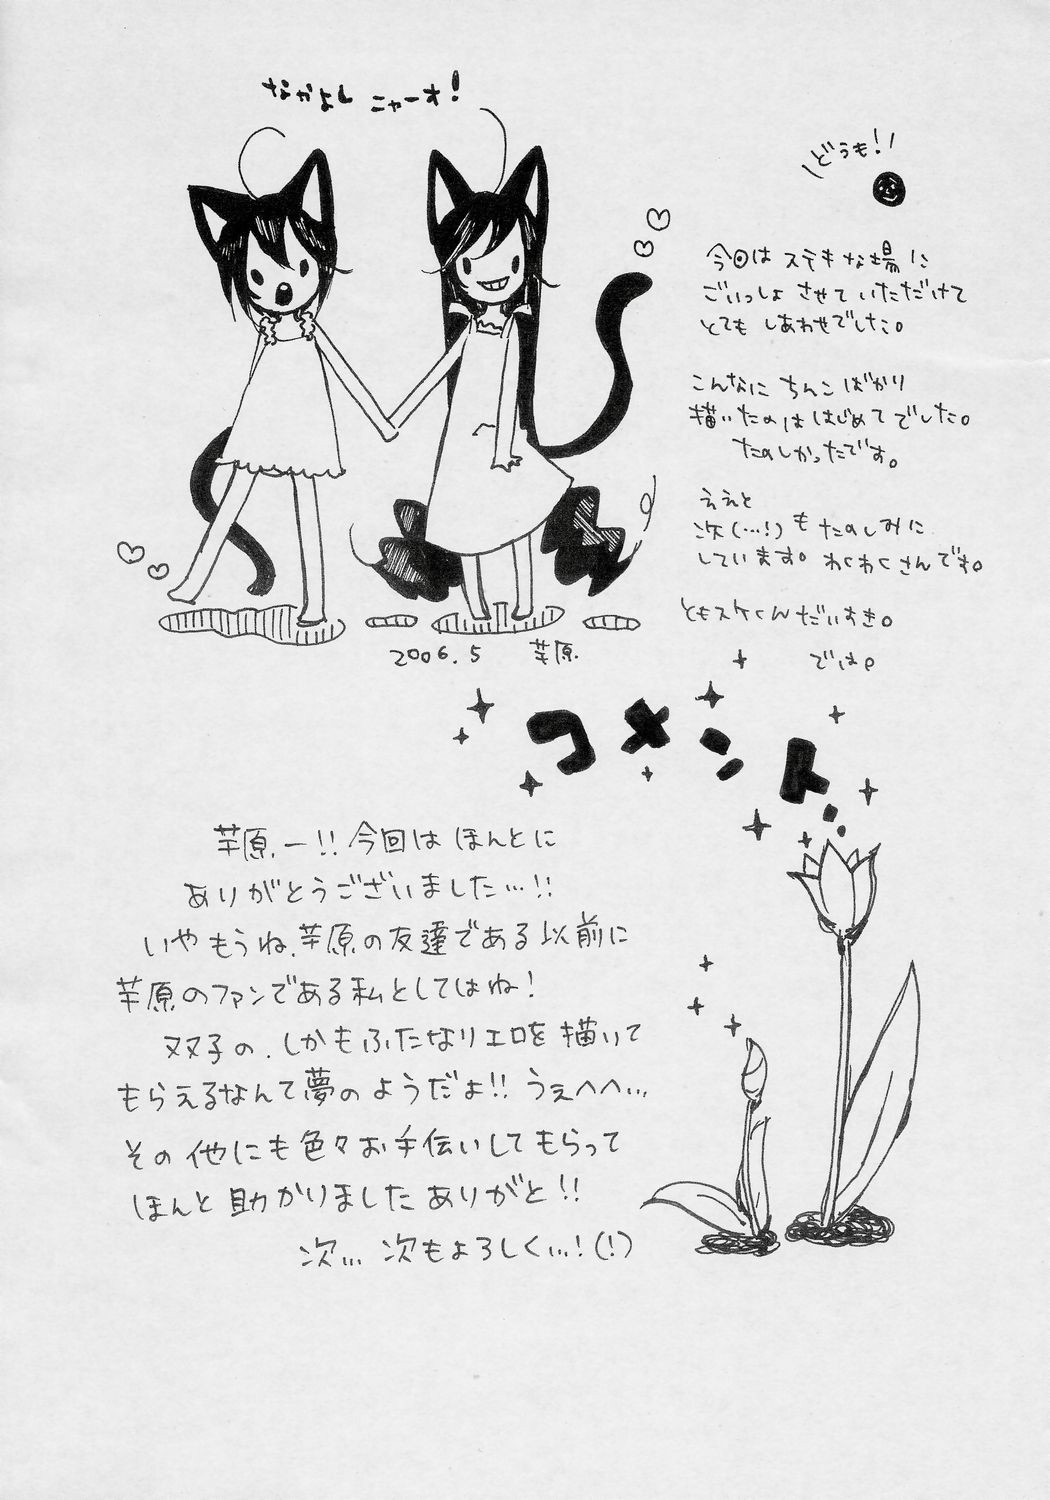 なかよし ニャーオ!
どうも!!
今回は ステキな場に
ごいっしょ させていただけて
とても しあわせでした。
こんなに ちんこ ばかり
描いたのは はじめて でした。
たのしかったです。
ええと
次(…!) も たのしみに
しています。 わくわくさんです。
ともスケくん だいすき。
では。
2006.5 芋原.
コメント.
芋原.ー!! 今回は ほんとに
ありがとうございました…!!
いや もうね、芋原の友達である以前に
芋原のファンである私としてはね!
双子の、しかもふたなりエロを描いて
もらえるなんて夢のようだよ!! うえへへ…
その他にも色々お手伝いしてもらって
ほんと助かりましたありがと!!
次… 次もよろしく…!(!)